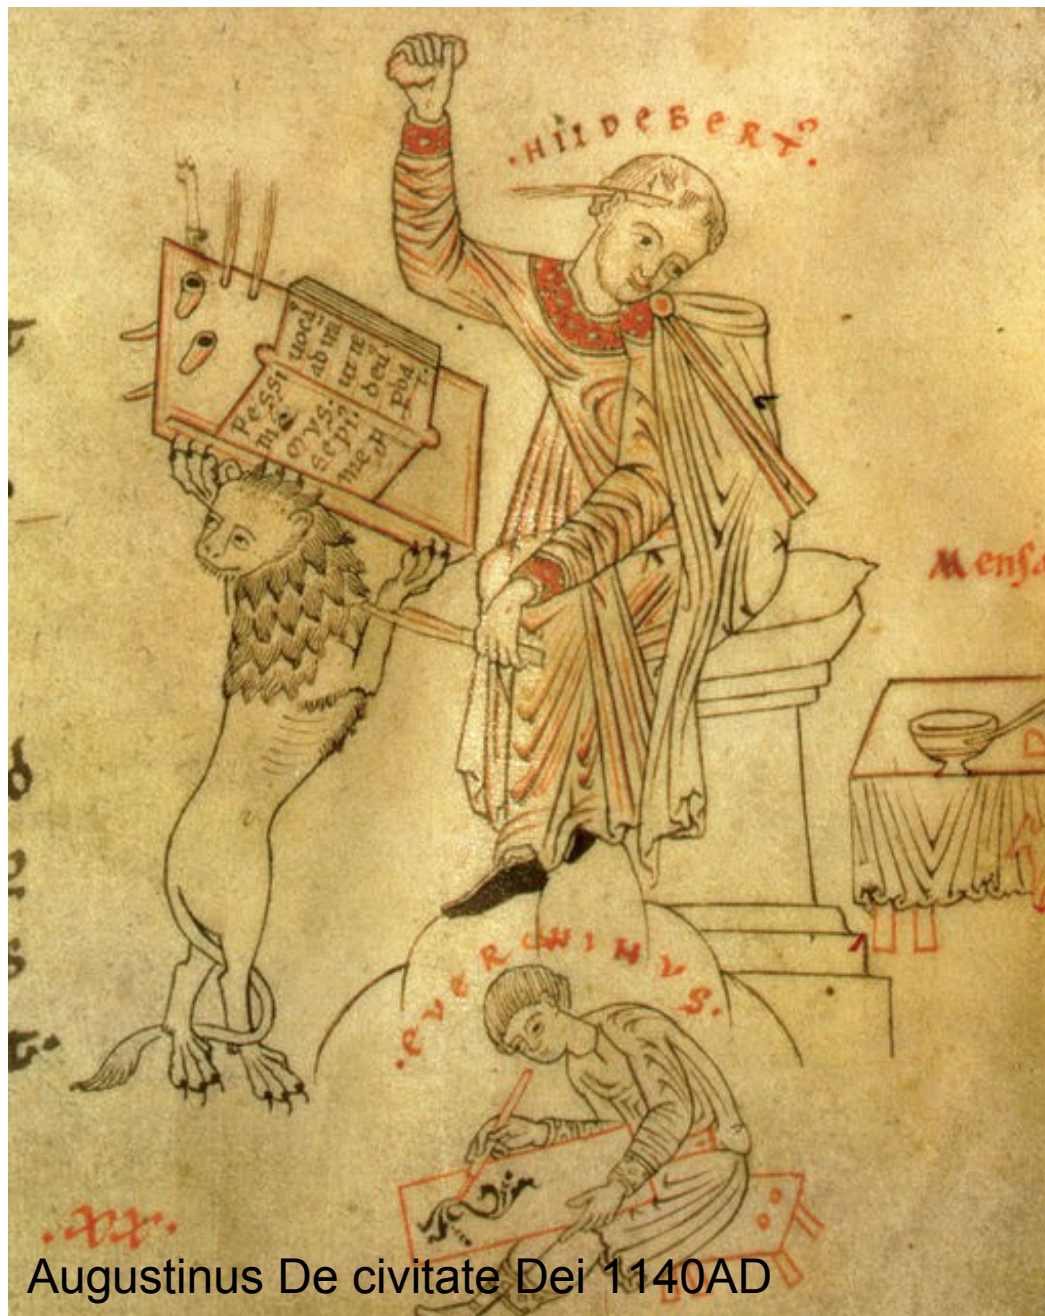 ·HILDEBERT⁹·
Pessi
me
mys.
sepi⁹
me p
uoca
ut te
pdat.
Mensa
·EVERWINVS·
·xx·
Augustinus De civitate Dei 1140AD